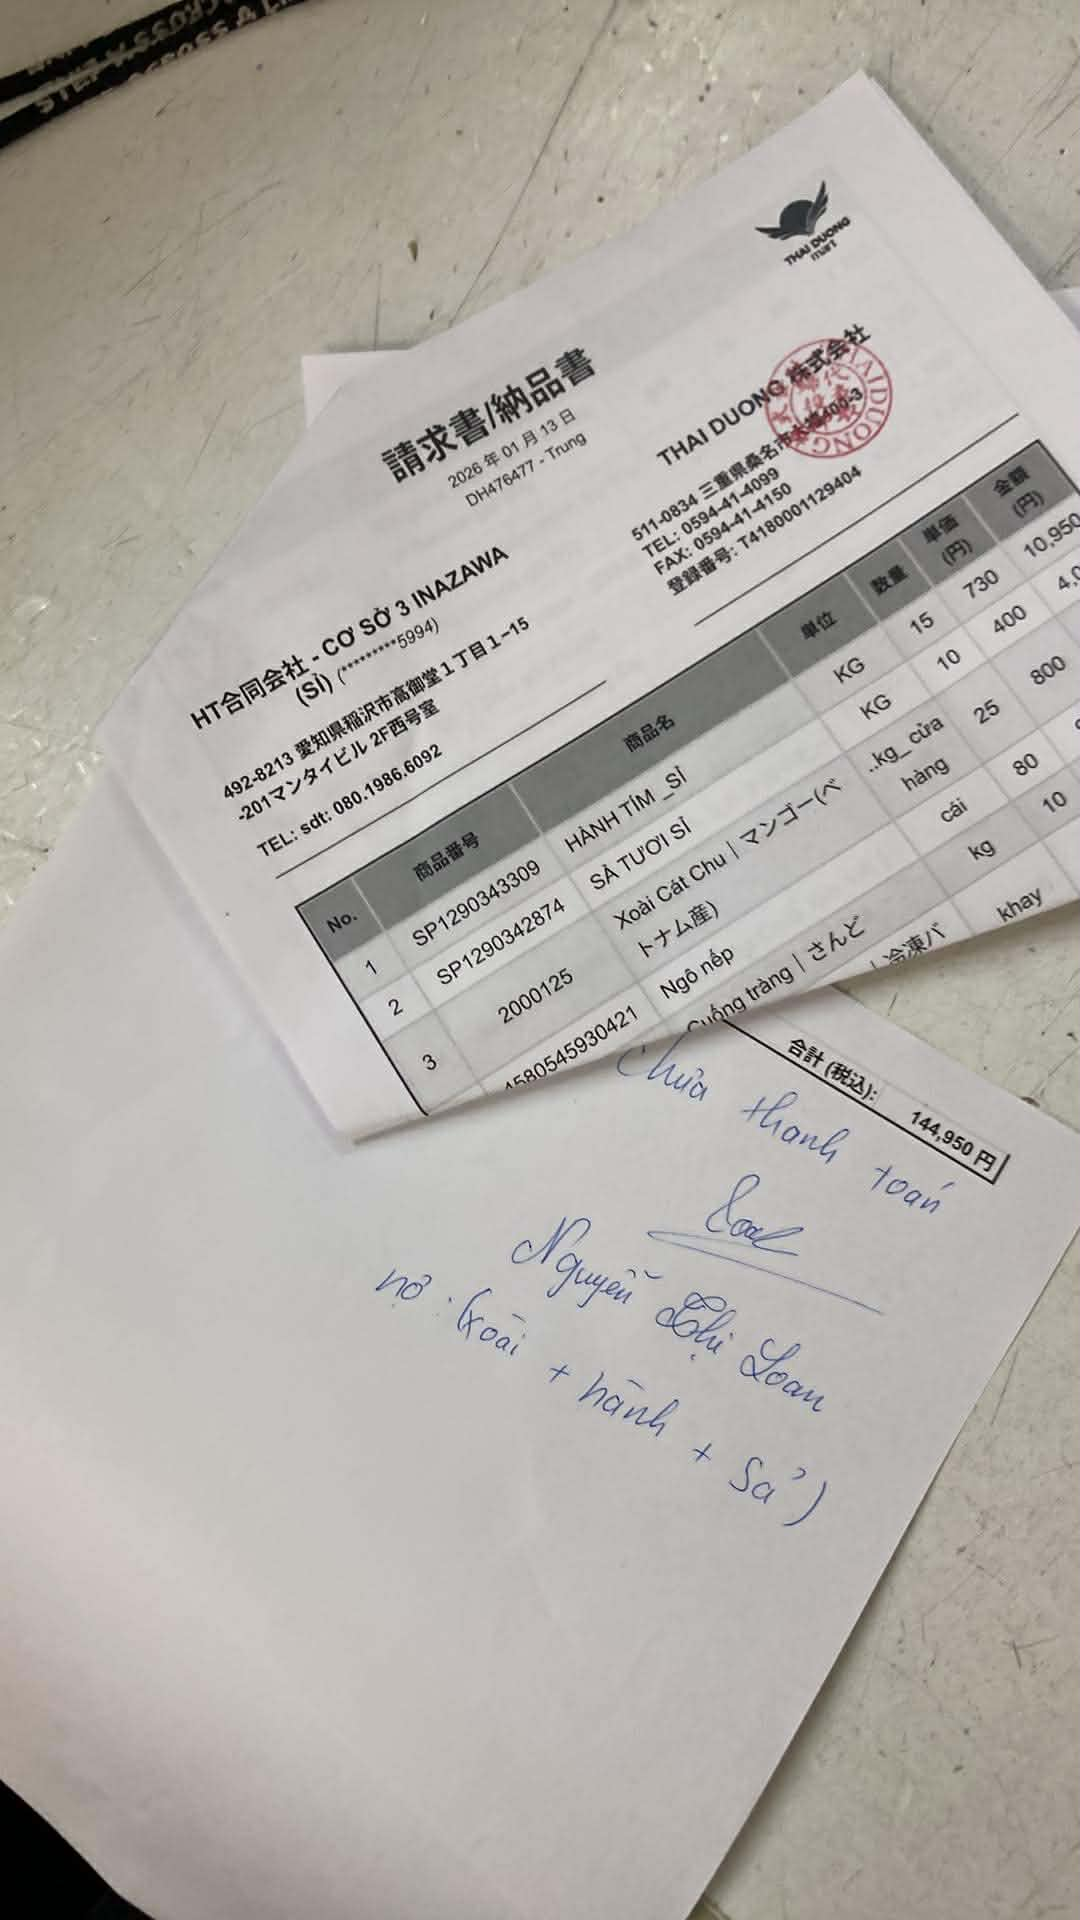 THAI DUONG
mart
請求書/納品書
2026 年 01 月 13 日
DH476477 - Trung
HT合同会社 - CƠ SỞ 3 INAZAWA
(SỈ) (*********5994)
492-8213 愛知県稲沢市高御堂１丁目１−15
-201マンタイビル 2F西号室
TEL: sdt: 080.1986.6092
THAI DUONG 株式会社
511-0834 三重県桑名市大福400-3
TEL: 0594-41-4099
FAX: 0594-41-4150
登録番号: T4180001129404
No. 商品番号 商品名 単位 数量 単価(円) 金額(円)
1 SP1290343309 HÀNH TÍM _SỈ KG 15 730 10,950
2 SP1290342874 SẢ TƯƠI SỈ KG 10 400 4,0
3 2000125 Xoài Cát Chu | マンゴー(ベ ..kg_cửa 25 800
トナム産) hàng
4580545930421 Ngô nếp cái 80
Cuống tràng | さんど kg 10
| 冷凍バ khay
合計 (税込): 144,950 円
Chưa thanh toán
Nguyễn Thị Loan
nợ . (xoài + hành + sả)